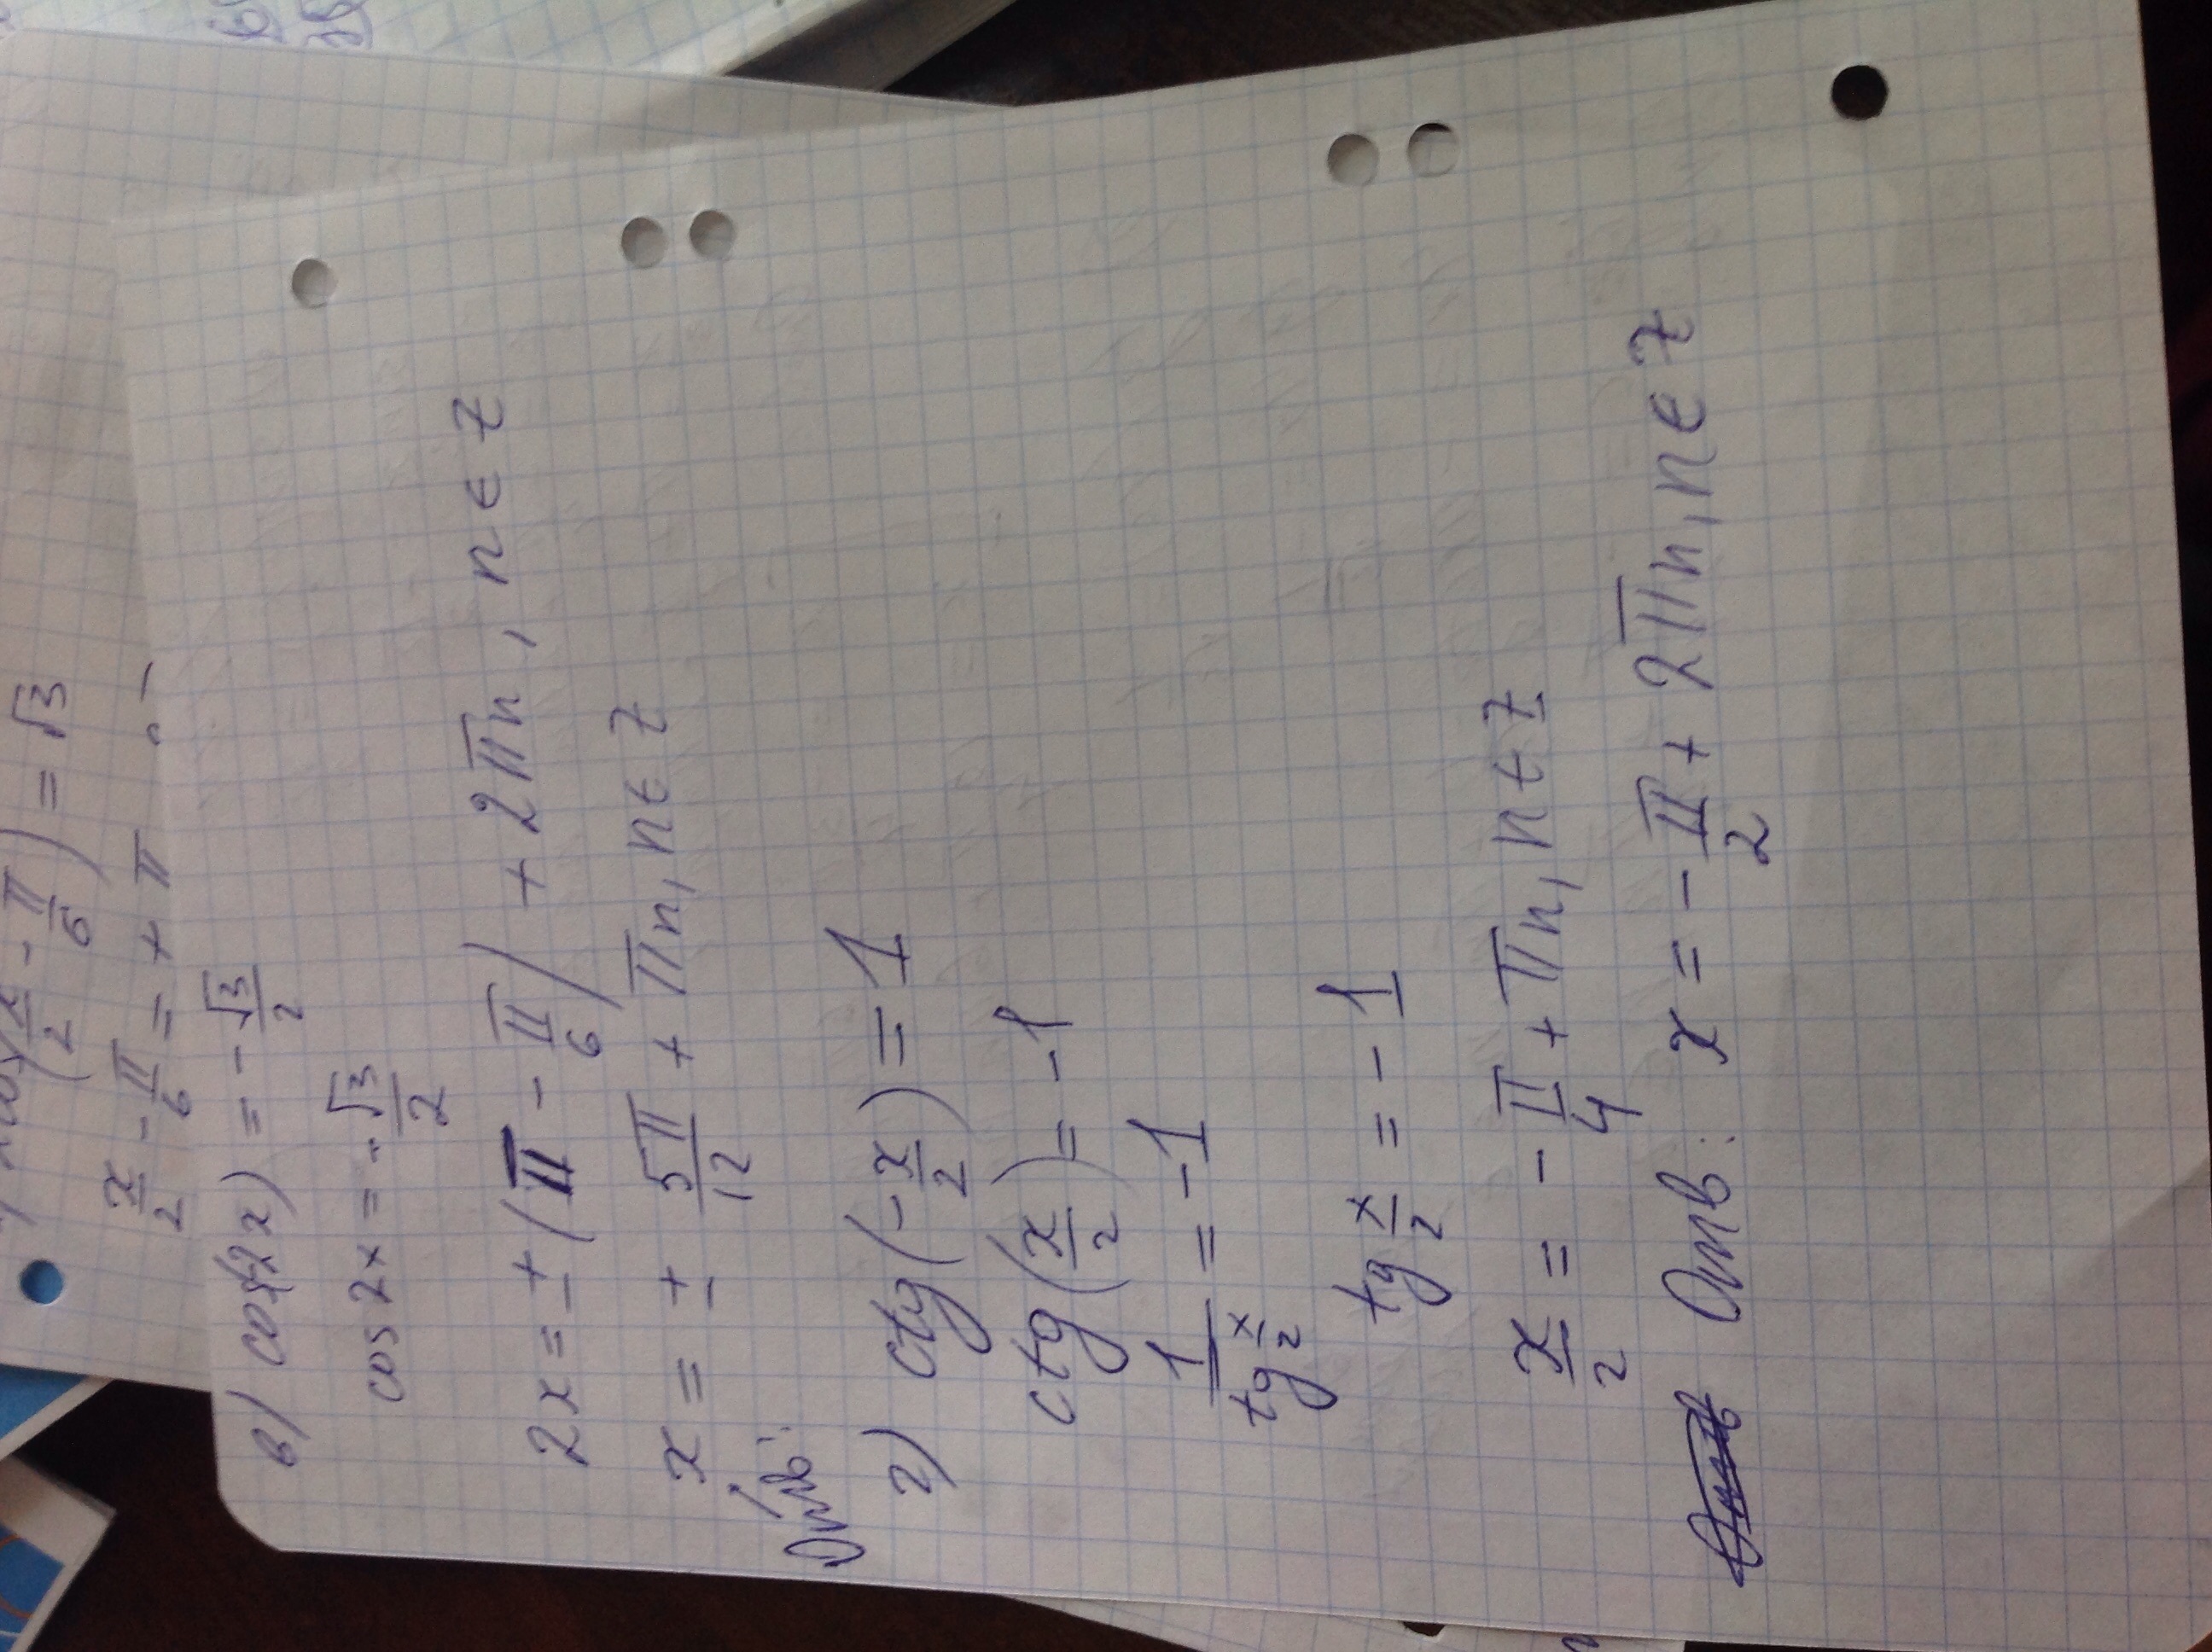 (x/2 - π/6) = √3
x/2 - π/6 = + π
в) cos(-2x) = - √3/2
cos 2x = - √3/2
2x = ± (π - π/6) + 2πn, n ∈ Z
x = ± 5π/12 + πn, n ∈ Z
Отв:
г) ctg(-x/2) = 1
ctg(x/2) = -1
1/tg x/2 = -1
tg x/2 = -1
x/2 = - π/4 + πn, n ∈ Z
Отв: x = - π/2 + 2πn, n ∈ Z